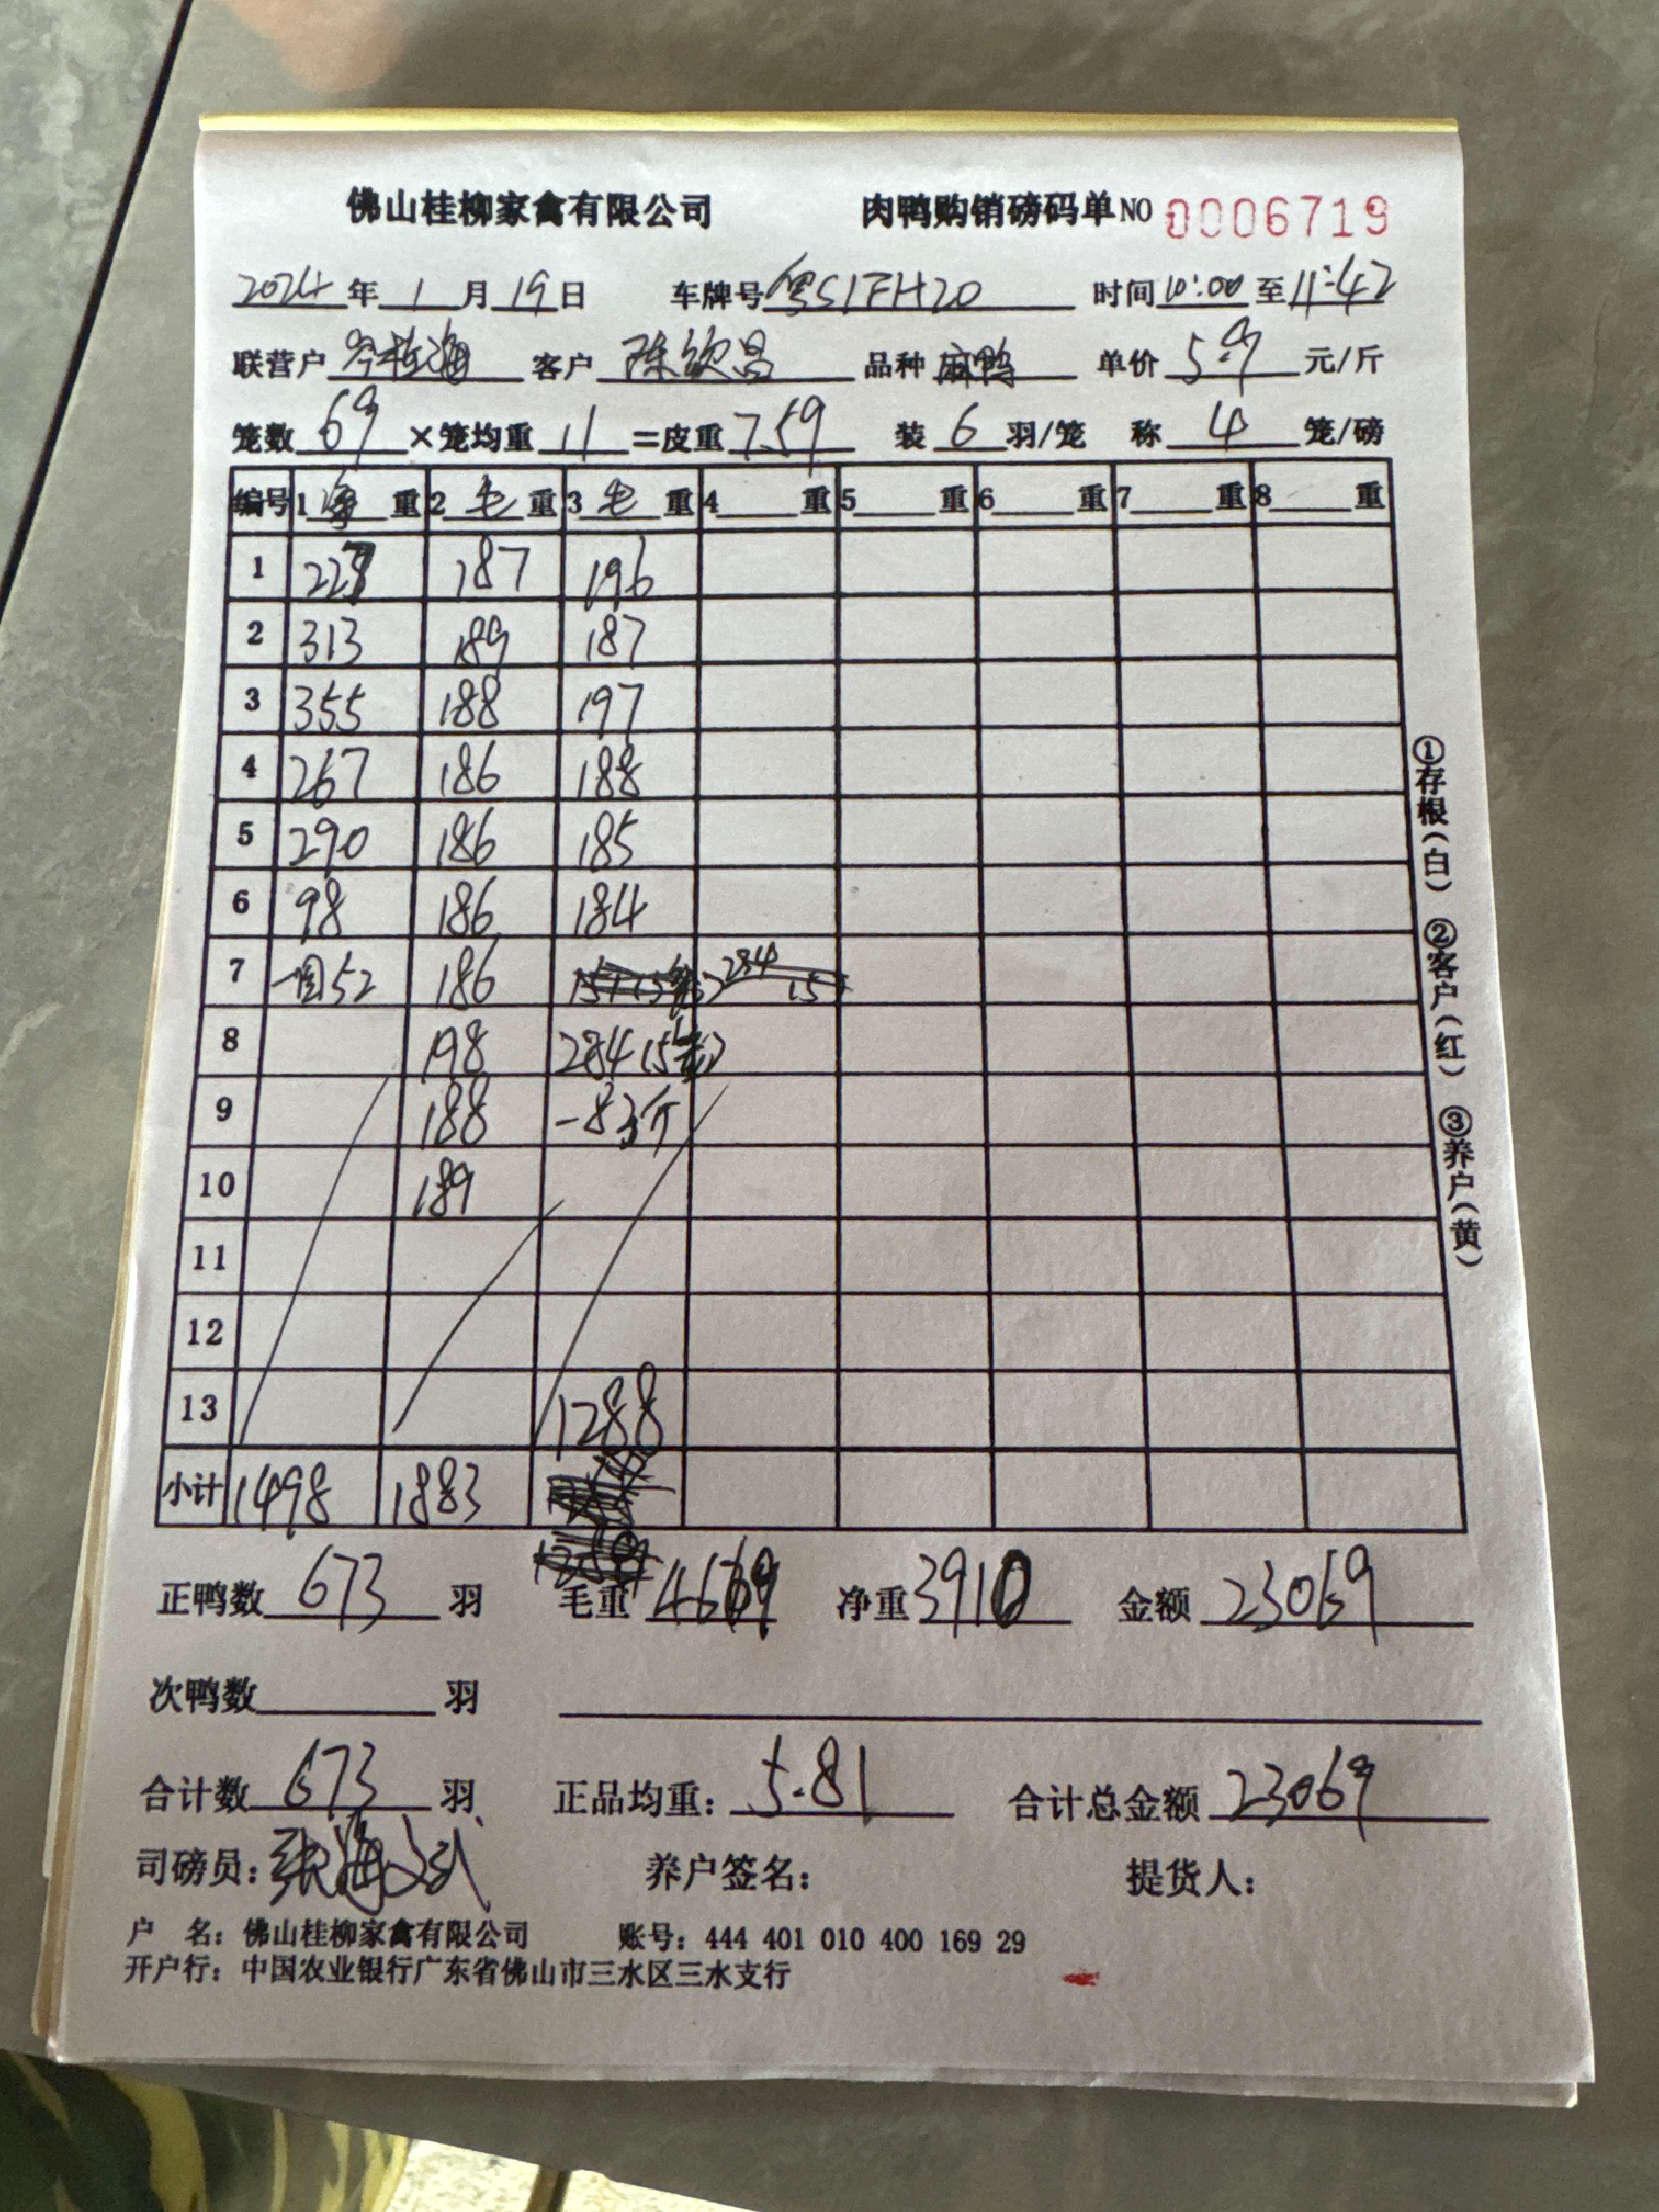 佛山桂柳家禽有限公司 肉鸭购销磅码单NO 0006719
2024年 1 月 19 日 车牌号 粤S1FH20 时间 10:00 至 11:42
联营户 海 客户 陈钦昌 品种 麻鸭 单价 5.9 元/斤
笼数 69 ×笼均重 11 =皮重 759 装 6 羽/笼 称 4 笼/磅
编号 1 净 重 2 毛 重 3 毛 重 4 重 5 重 6 重 7 重 8 重
1 227 187 196
2 313 189 187
3 355 188 197
4 267 186 188
5 290 186 185
6 98 186 184
7 52 186 284 151
8 198 284(5笼)
9 188 -83斤
10 189
11
12
13 1288
小计 1498 1883
正鸭数 673 羽 毛重 4669 净重 3910 金额 23069
次鸭数 羽
合计数 673 羽 正品均重: 5.81 合计总金额 23069
司磅员: 张海 养户签名: 提货人:
户 名: 佛山桂柳家禽有限公司 账号: 444 401 010 400 169 29
开户行: 中国农业银行广东省佛山市三水区三水支行
①存根(白) ②客户(红) ③养户(黄)